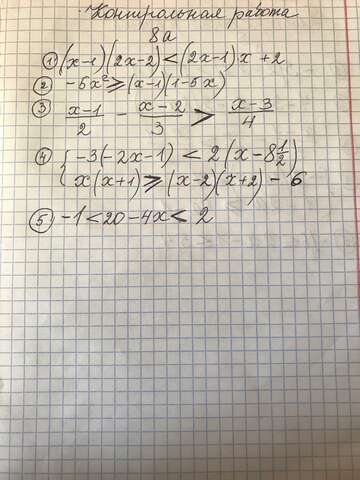 Контрольная работа
8а
1) (x-1)(2x-2)<(2x-1)x+2
2) -5x²⩾(x-1)(1-5x)
3) (x-1)/2 - (x-2)/3 > (x-3)/4
4) { -3(-2x-1) < 2(x-8 1/2)
x(x+1)⩾(x-2)(x+2)-6
5) -1<20-4x<2